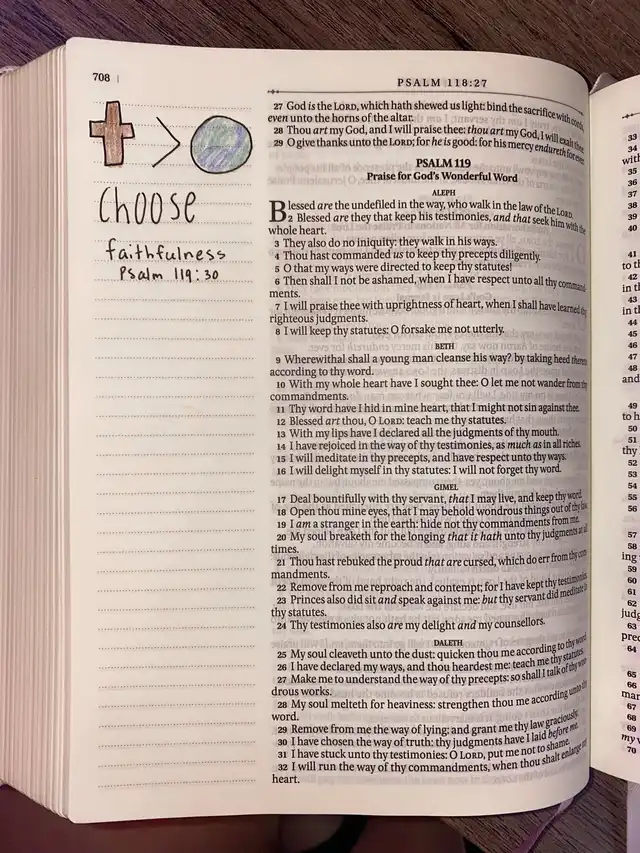 708 |
PSALM 118:27
>
choose
faithfulness
Psalm 119:30
27 God is the LORD, which hath shewed us light: bind the sacrifice with cords,
even unto the horns of the altar.
28 Thou art my God, and I will praise thee: thou art my God, I will exalt thee.
29 O give thanks unto the LORD; for he is good: for his mercy endureth for ever.
PSALM 119
Praise for God's Wonderful Word
ALEPH
Blessed are the undefiled in the way, who walk in the law of the LORD.
2 Blessed are they that keep his testimonies, and that seek him with the
whole heart.
3 They also do no iniquity: they walk in his ways.
4 Thou hast commanded us to keep thy precepts diligently.
5 O that my ways were directed to keep thy statutes!
6 Then shall I not be ashamed, when I have respect unto all thy command
ments.
7 I will praise thee with uprightness of heart, when I shall have learned thy
righteous judgments.
8 I will keep thy statutes: O forsake me not utterly.
BETH
9 Wherewithal shall a young man cleanse his way? by taking heed thereto
according to thy word.
10 With my whole heart have I sought thee: O let me not wander from thy
commandments.
11 Thy word have I hid in mine heart, that I might not sin against thee.
12 Blessed art thou, O LORD: teach me thy statutes.
13 With my lips have I declared all the judgments of thy mouth.
14 I have rejoiced in the way of thy testimonies, as much as in all riches.
15 I will meditate in thy precepts, and have respect unto thy ways.
16 I will delight myself in thy statutes: I will not forget thy word.
GIMEL
17 Deal bountifully with thy servant, that I may live, and keep thy word.
18 Open thou mine eyes, that I may behold wondrous things out of thy law.
19 I am a stranger in the earth: hide not thy commandments from me.
20 My soul breaketh for the longing that it hath unto thy judgments at all
times.
21 Thou hast rebuked the proud that are cursed, which do err from thy com
mandments.
22 Remove from me reproach and contempt; for I have kept thy testimonies.
23 Princes also did sit and speak against me: but thy servant did meditate in
thy statutes.
24 Thy testimonies also are my delight and my counsellors.
DALETH
25 My soul cleaveth unto the dust: quicken thou me according to thy word.
26 I have declared my ways, and thou heardest me: teach me thy statutes.
27 Make me to understand the way of thy precepts: so shall I talk of thy won
drous works.
28 My soul melteth for heaviness: strengthen thou me according unto thy
word.
29 Remove from me the way of lying: and grant me thy law graciously.
30 I have chosen the way of truth: thy judgments have I laid before me.
31 I have stuck unto thy testimonies: O LORD, put me not to shame.
32 I will run the way of thy commandments, when thou shalt enlarge my
heart.
33
34
with
35
36
37
38
39
40
41
to th
42
in th
43
in th
44
45
46
47
48
49
to h
50
51
thy
52
53
54
55
56
57
58
ing
59
60
61
62
judg
63
prec
64
65
66
mar
67
68
69
my
70